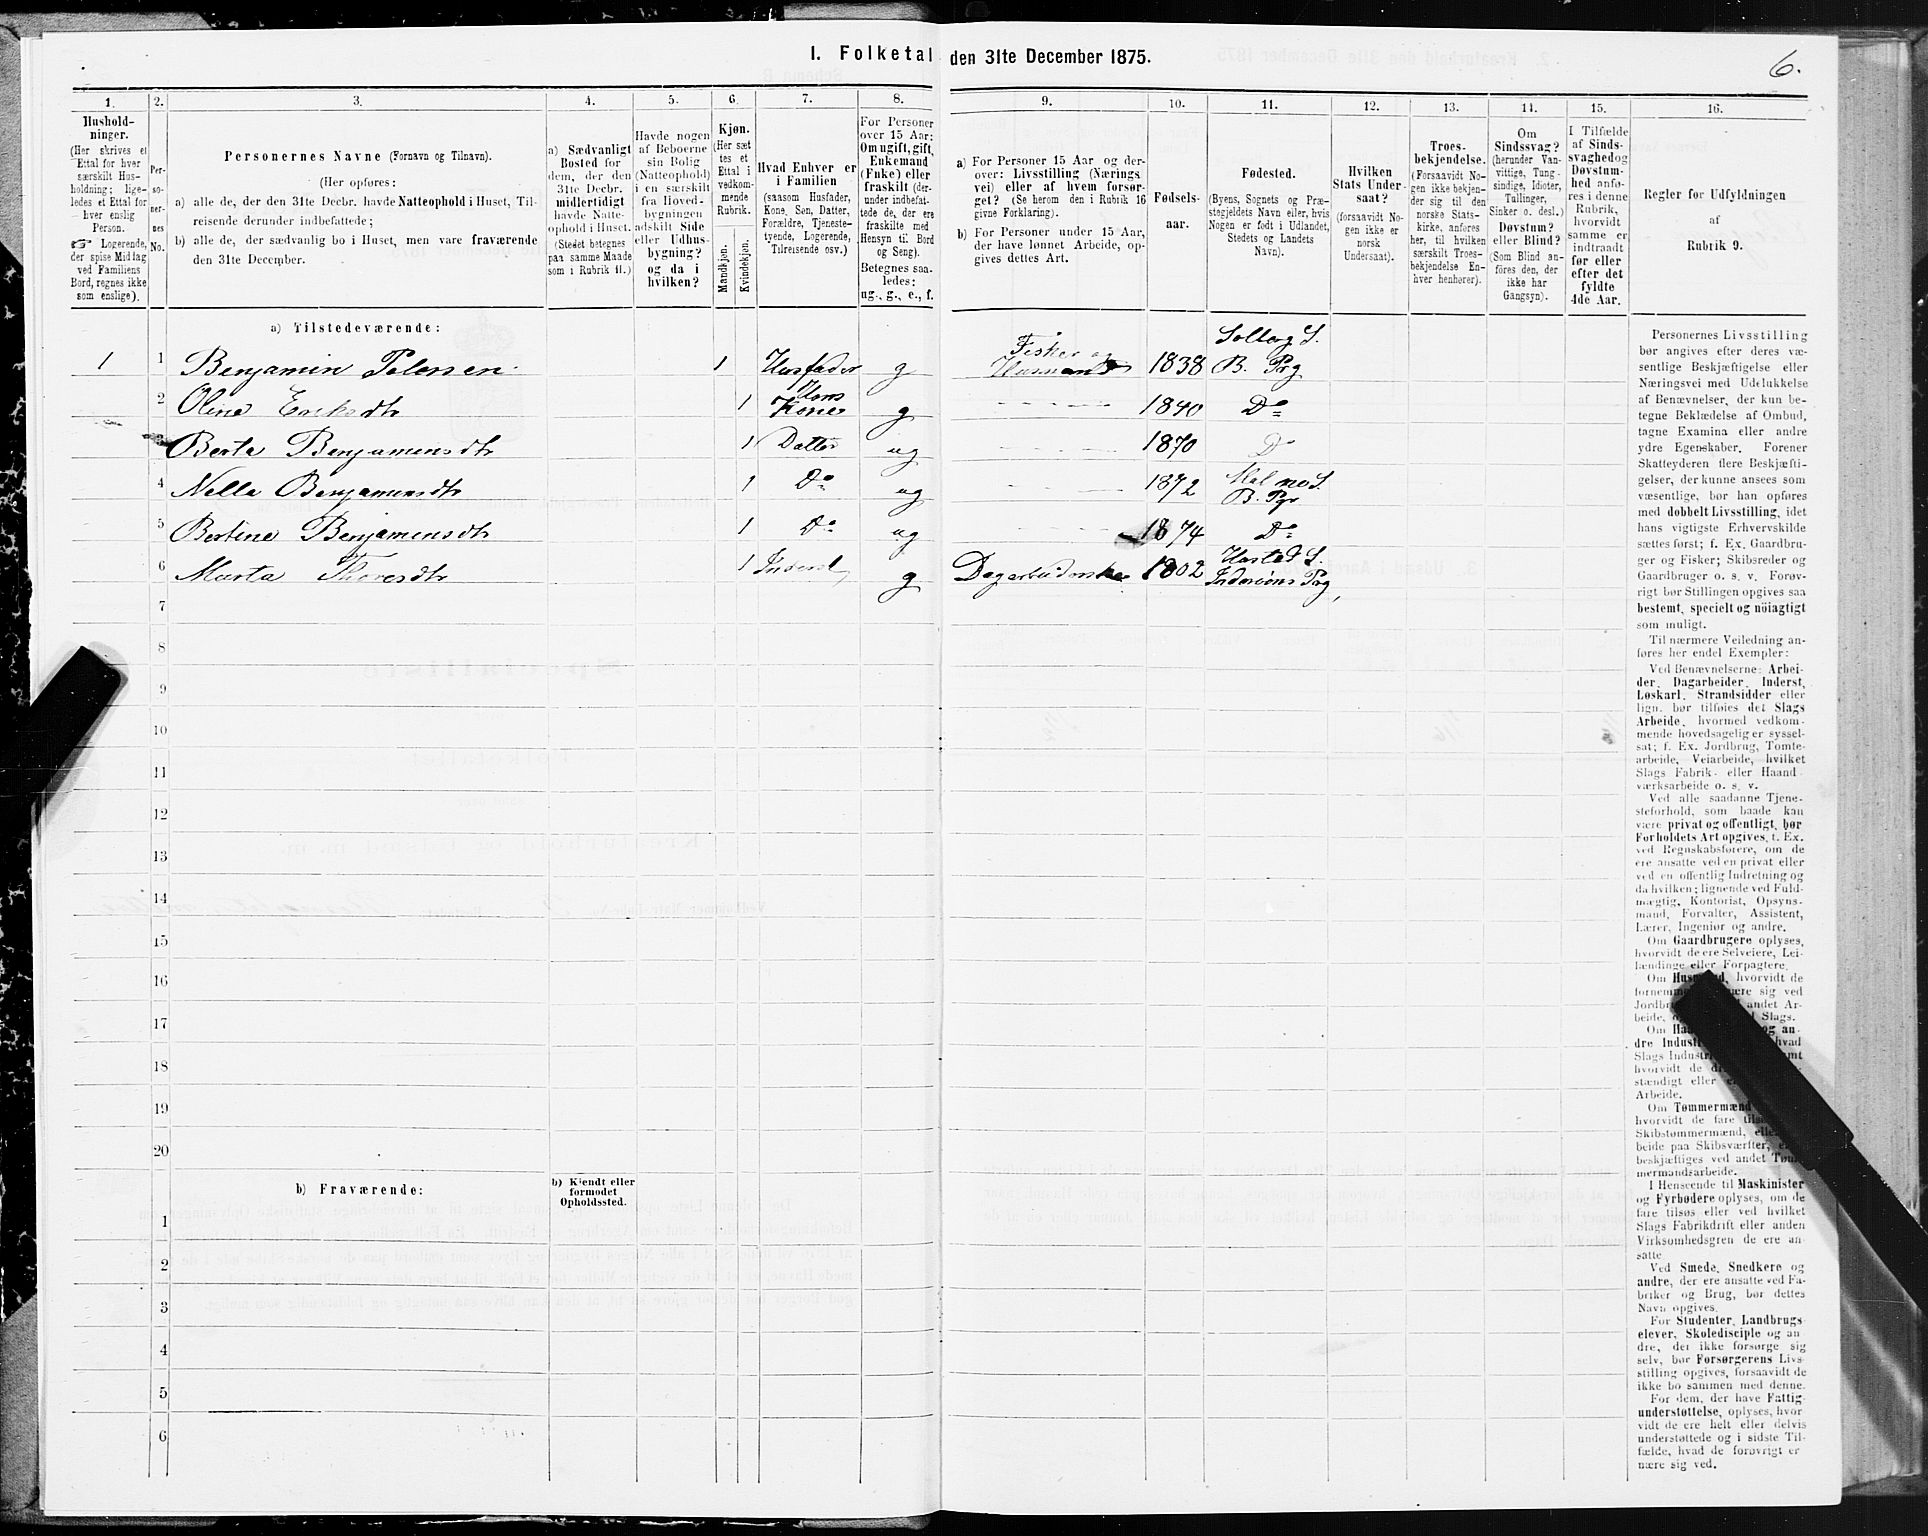 I. Folketal den 31te December 1875.
6.
1.
Hushold-
ninger.
(Her skrives et
Ettal for hver
særskilt Hus-
holdning; lige-
ledes et Ettal for
hver enslig
Person.
☞ Logerende,
der spise Middag
ved Familiens
Bord, regnes ikke
som enslige).
2.
Per-
so-
ner-
nes
No.
3.
Personernes Navne (Fornavn og Tilnavn).
(Her opføres:
a) alle de, der den 31te Decbr. havde Natteophold i Huset, Til-
reisende derunder indbefattede;
b) alle de, der sædvanlig bo i Huset, men vare fraværende
den 31te December.
4.
a) Sædvanligt
Bosted for
dem, der den
31te Decbr.
midlertidigt
havde Natte-
ophold i Huset.
(Stedet betegnes
paa samme Maade
som i Rubrik 11.)
5.
Havde nogen
af Beboerne
sin Bolig
(Natteophold)
i en særskilt
fra Hoved-
bygningen
adskilt Side
eller Udhus-
bygning?
og da i
hvilken?
6.
Kjøn.
(Her sæt
tes et
Ettal i
vedkom-
mende
Rubrik.
Mandkjøn.
Kvindekjøn.
7.
Hvad Enhver er
i Familien
(saasom Husfader,
Kone, Søn, Datter,
Forældre, Tjeneste-
tyende, Logerende,
Tilreisende osv.)
8.
For Personer
over 15 Aar:
Om ugift, gift,
Enkemand
(Enke) eller
fraskilt (der-
under indbefat-
tede de, der ere
fraskilte med
Hensyn til Bord
og Seng).
Betegnes saa-
ledes:
ug., g., e., f.
9.
a) For Personer 15 Aar og der-
over: Livsstilling (Nærings
vei) eller af hvem forsør-
get? (Se herom den i Rubrik 16
givne Forklaring).
b) For Personer under 15 Aar,
der have lønnet Arbeide, op-
gives dettes Art.
10.
Fødsels-
aar.
11.
Fødested.
(Byens, Sognets og Præ-
stegjeldets Navn eller, hvis
Nogen er født i Udlandet,
Stedets og Landets
Navn).
12.
Hvilken
Stats Under-
saat?
(forsaavidt No-
gen ikke er
norsk
Undersaat).
13.
Troes-
bekjendelse.
(Forsaavidt No-
gen ikke bekjen-
der sig til den
norske Stats-
kirke, anføres
her, til hvilken
særskilt Troes-
bekjendelse En-
hver henhører).
14.
Om
Sindssvag?
(herunder Van-
vittige, Tung-
sindige, Idioter,
Tullinger,
Sinker o. desl.)
Døvstum?
eller Blind?
(Som Blind an-
føres den, der
ikke har
Gangsyn).
15.
I Tilfælde
af Sinds-
svaghed og
Døvstum-
hed anfø-
res i denne
Rubrik,
hvorvidt
samme er
indtraadt
før eller
efter det
fyldte
4de Aar.
16.
Regler for Udfyldningen
af
Rubrik 9.
a) Tilstedeværende:
1 1 Benjamin Pedersen 1 Husfader g Fisker og Husmand 1838 Solberg S. B. Prg
2 Oline Eriksdtr 1 Hans Kone g 1840 Do
3 Berta Benjaminsdtr 1 Datter ug 1870 Do
4 Nella Benjaminsdtr 1 Do ug 1872 Malmo S. B. Pgr
5 Bertine Benjaminsdtr 1 Do ug 1874 Do
6 Marta Thoresdtr 1 Inderst g Dagarbeiderske 1802 Hustad S. Inderøens Prg,
7
8
9
10
11
12
13
14
15
16
17
18
19
20
b) Fraværende:
b) Kjendt eller
formodet
Opholdssted.
1
2
3
4
5
6
Personernes Livsstilling
bør angives efter deres væ-
sentlige Beskjæftigelse eller
Næringsvei med Udelukkelse
af Benævnelser, der kun be-
tegne Beklædelse af Ombud,
tagne Examina eller andre
ydre Egenskaber. Forener
Skatteyderen flere Beskjæfti-
gelser, der kunne ansees som
væsentlige, bør han opføres
med dobbelt Livsstilling, idet
hans vigtigste Erhvervskilde
sættes først; f. Ex. Gaardbru-
ger og Fisker; Skibsreder og
Gaardbruger o. s. v. Forøv-
rigt bør Stillingen opgives saa
bestemt, specielt og nöiagtigt
som muligt.
Til nærmere Veiledning an-
føres her endel Exempler:
Ved Benævnelserne: Arbei-
der, Dagarbeider, Inderst,
Løskarl, Strandsidder eller
lign. bør tilføies det Slags
Arbeide, hvormed vedkom-
mende hovedsagelig er syssel-
sat; f. Ex. Jordbrug, Tomte-
arbeide, Veiarbeide, hvilket
Slags Fabrik- eller Haand
værksarbeide o. s. v.
Ved alle saadanne Tjene-
steforhold, som baade kan
være privat og offentligt, bør
Forholdets Art opgives, f. Ex.
ved Regnskabsførere, om de
ere ansatte ved en privat eller
ved en offentlig Indretning og
da hvilken; lignende ved Fuld-
mægtig, Kontorist, Opsyns-
mand, Forvalter, Assistent,
Lærer, Ingeniør og andre.
Om Gaardbrugere oplyses,
hvorvidt de ere Selveiere, Lei-
lændinge eller Forpagtere.
Om hvorvidt de
være sig ved
andet Ar-
beide, Slags.
Om og an-
dre hvad
Slags
hvorvidt de
eller
Arbeide.
Om Tømmermænd
hvorvidt de fare
Skibstømmermænd,
beide paa Skibsværfter,
beskjæftiges ved andet
mermandsarbeide.
I Henseende til Maskinister
og Fyrbødere oplyses, om de
fare tilsøs eller ved hvilket
Slags Fabrikdrift eller anden
Virksomhedsgren de ere an-
satte.
Ved Smede, Snedkere og
andre, der ere ansatte ved Fa-
briker og Brug, bør dettes
Navn opgives.
For Studenter, Landbrugs-
elever, Skoledisciple og an-
dre, der ikke forsørge sig
selv, bør Forsørgerens Livs-
stilling opgives, forsaavidt de
ikke bo sammen med denne.
For dem, der have Fattig-
understøttelse, oplyses, hvor
vidt de ere helt eller delvis
understøttede og i sidste Til-
fælde, hvad de forøvrigt er
nære sig ved.